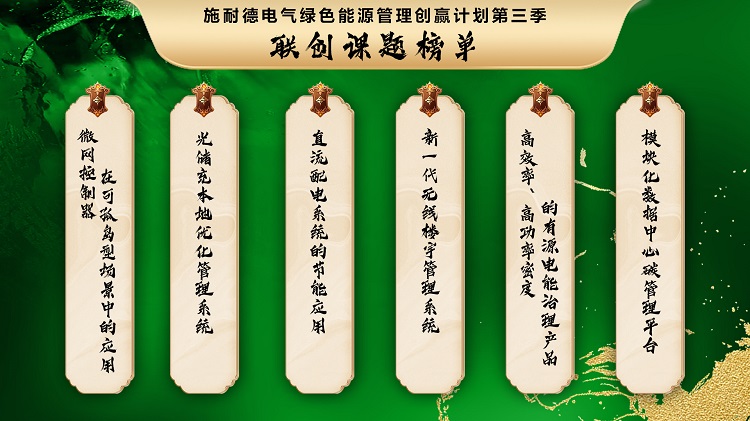 施耐德电气绿色能源管理创赢计划第三季
联创课题榜单
微网控制器
在可孤岛型场景中的应用
光储充本地优化管理系统
直流配电系统的节能应用
新一代无线楼宇管理系统
高效率、高功率密度
的有源电能治理产品
模块化数据中心碳管理平台